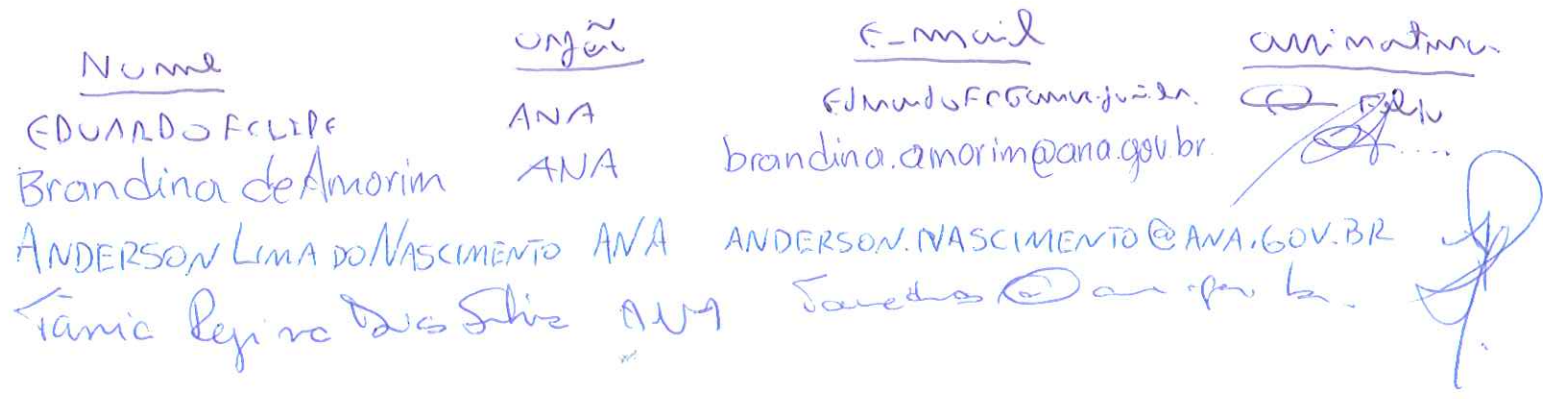 Nome órgão E-mail assinatura
EDUARDO FELIPE ANA
Brandina de Amorim ANA brandina.amorim@ana.gov.br
ANDERSON LIMA DO NASCIMENTO ANA ANDERSON.NASCIMENTO@ANA.GOV.BR
Tânia Regina Dias Silva ANA